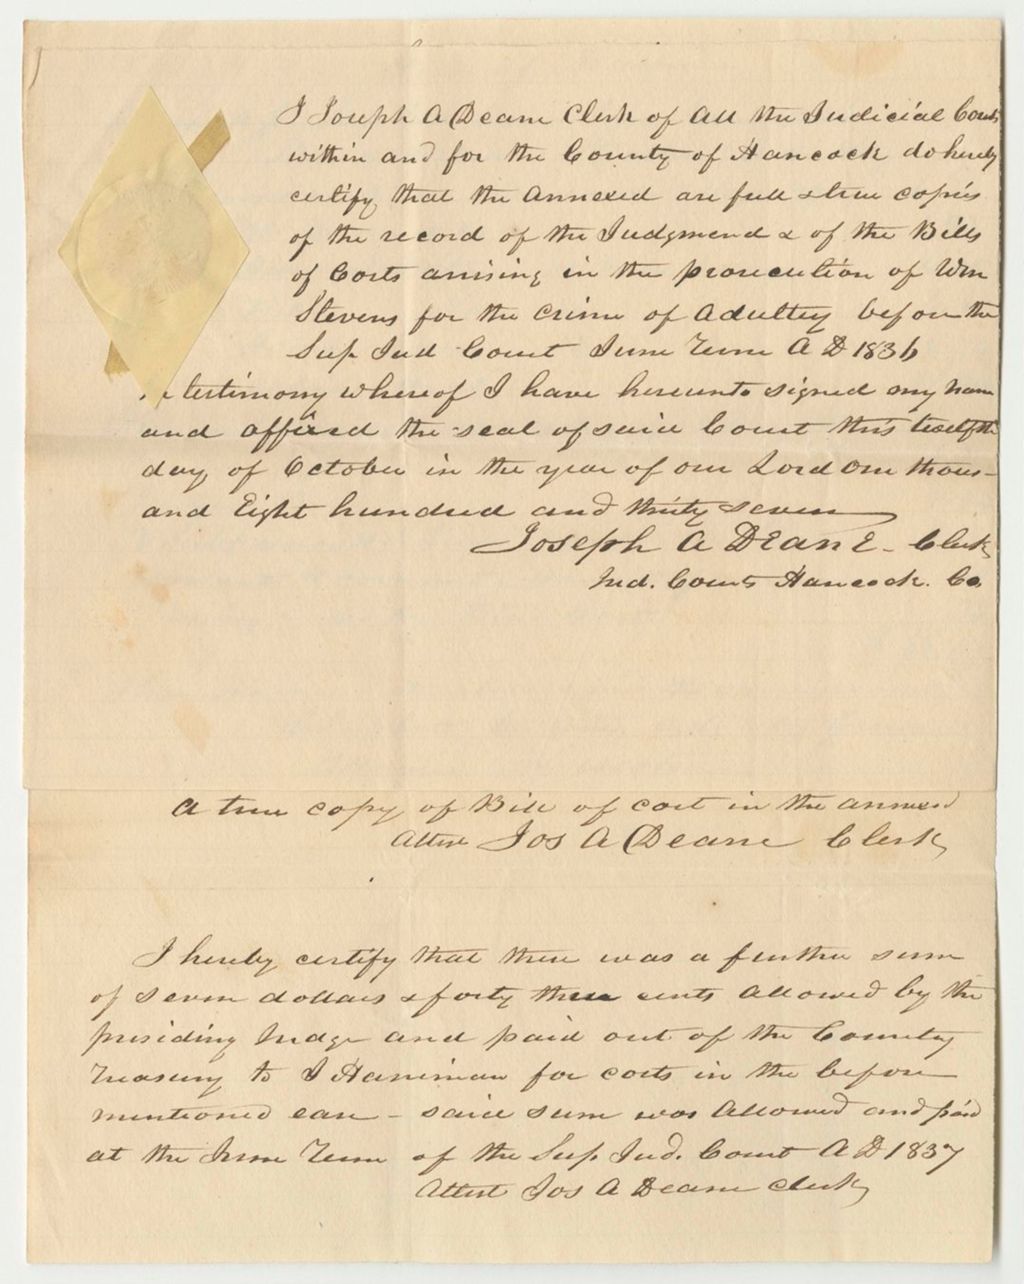 I Joseph A Deane Clerk of All the Judicial Courts
within and for the County of Hancock do hereby
certify that the annexed are full & true copies
of the record of the Judgmend & of the Bills
of Costs arising in the prosecution of Wm
Stevens for the crime of Adultry before the
Sup Jud Court June Term A D 1836
testimony whereof I have hereunto signed my name
and affixed the seal of said Court this twelfth
day of October in the year of our Lord one thous-
and Eight hundred and thirty seven
Joseph A Deane - Clerk
Jud. Courts Hancock. Co.
A true copy of Bill of cost in the annexed
Attest Jos A Deane Clerk
I hereby certify that there was a further sum
of seven dollars & forty three cents allowed by the
presiding Judge and paid out of the County
Treasury to J Harriman for costs in the before
mentioned case - said sum was allowed and paid
at the June Term of the Sup. Jud. Court A D 1837
Attest Jos A Deane clerk